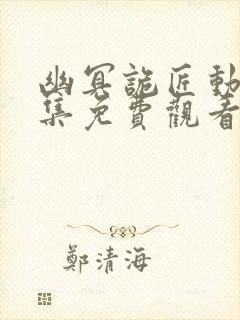 幽冥詭匠動
集免費觀看
鄭清海